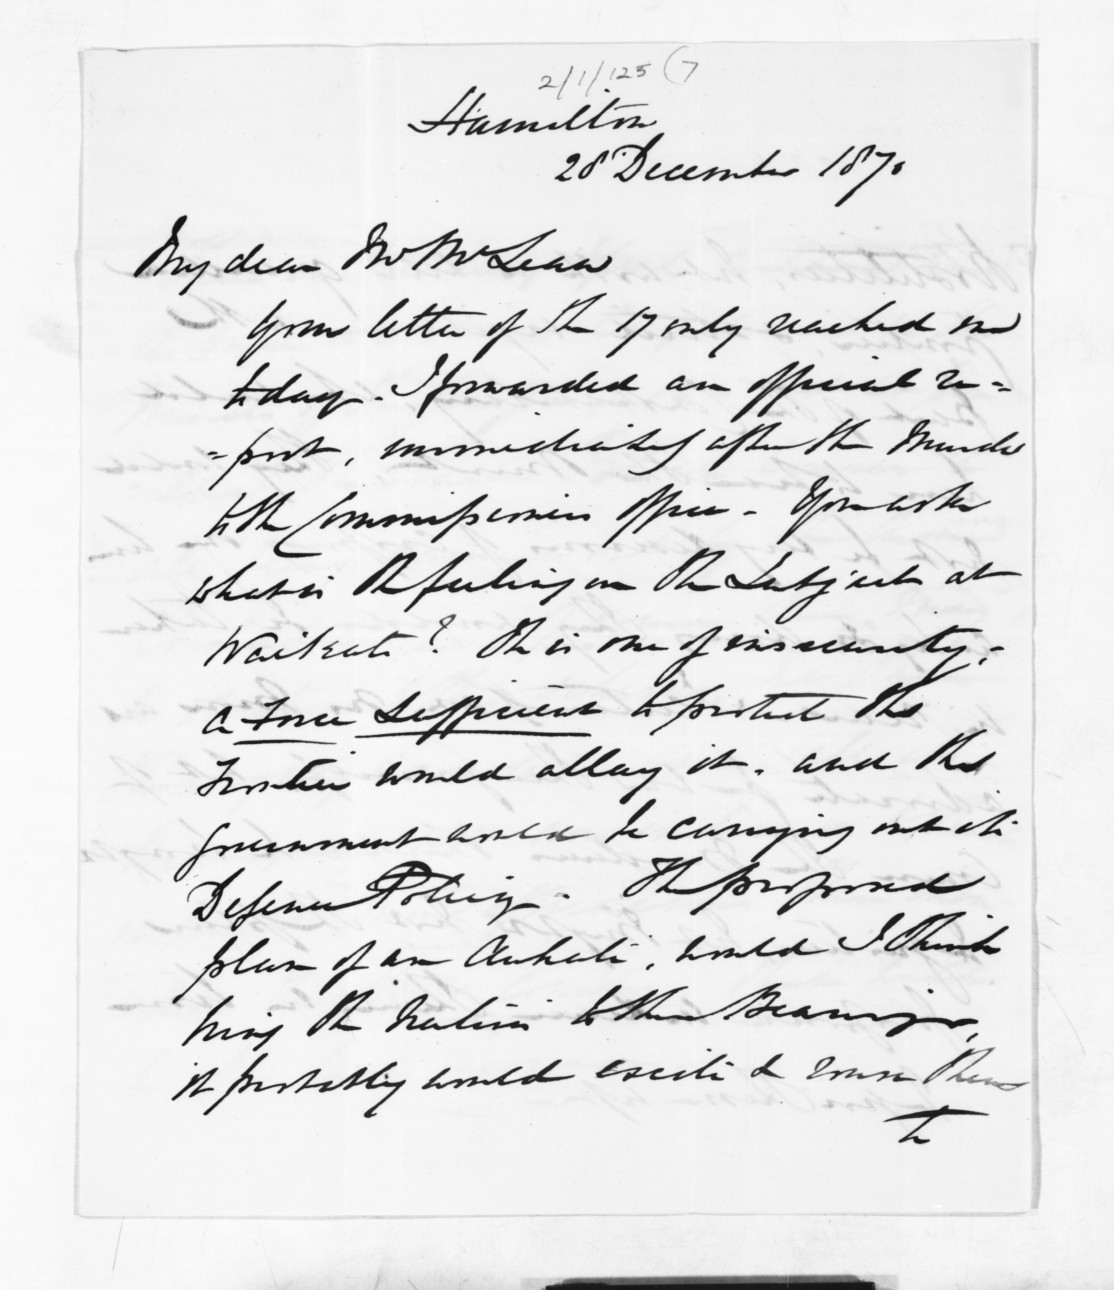 2/1/125 (7
Hamilton
28 December 1870
My dear Mr McLean
Your letter of the 17 only reached me
today. I forwarded an official re=
=port, immediately after the Murder
to the Commissioners office - You ask
what is the feeling on the Subject at
Waikato? It is one of insecurity,
a Force Sufficient to protect the
Frontier would allay it. and the
Government would be carrying out its
Defence Policy - The proposed
plan of an Aukati, would I think
bring the Natives to their Bearings,
it probably would excite & rouse them
to